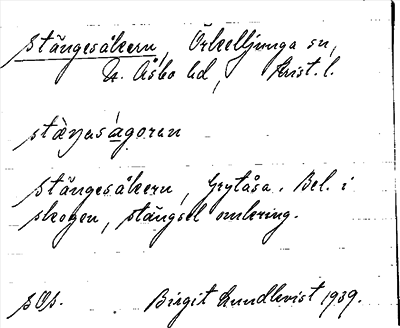 Stängesåkern, Örkelljunga sn,
N. Åsbo hd, Krist. l.
stäŋasågoran
Stängesåkern, Grytåsa. Bel. i
skogen, stängsel omkring.
sOs. Birgit Lundkvist 1939.